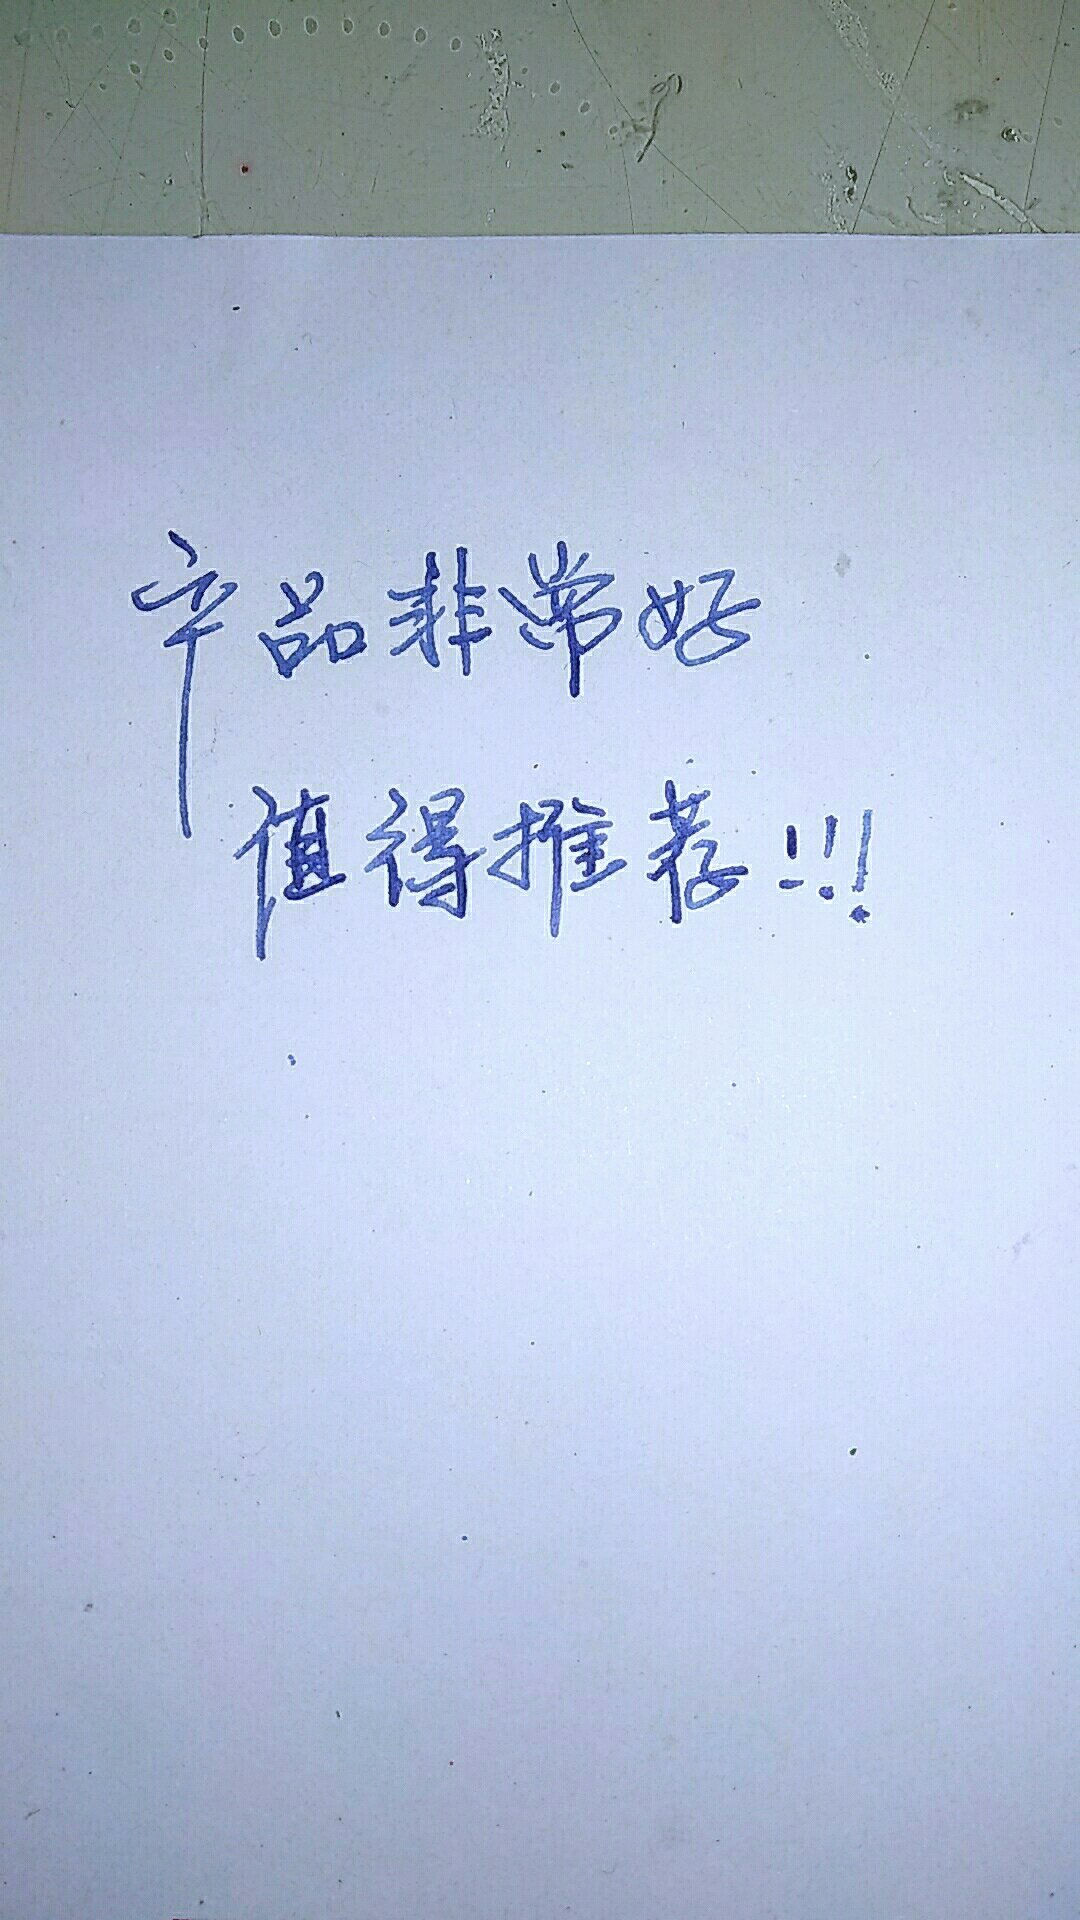 产品非常好
值得推荐!!!